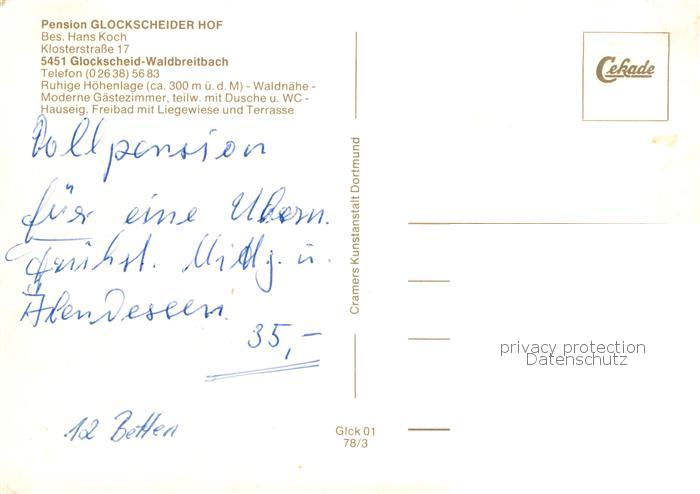 Pension GLOCKSCHEIDER HOF
Bes. Hans Koch
Klosterstraße 17
5451 Glockscheid-Waldbreitbach
Telefon (0 26 38) 56 83
Ruhige Höhenlage (ca. 300 m ü. d. M) - Waldnähe -
Moderne Gästezimmer, teilw. mit Dusche u. WC -
Hauseig. Freibad mit Liegewiese und Terrasse
Vollpension
für eine Übern.
Frühst. Mittg. u.
Abendessen
35,-
12 Betten
Cramers Kunstanstalt Dortmund
Glck 01
78/3
Cekade
privacy protection
Datenschutz